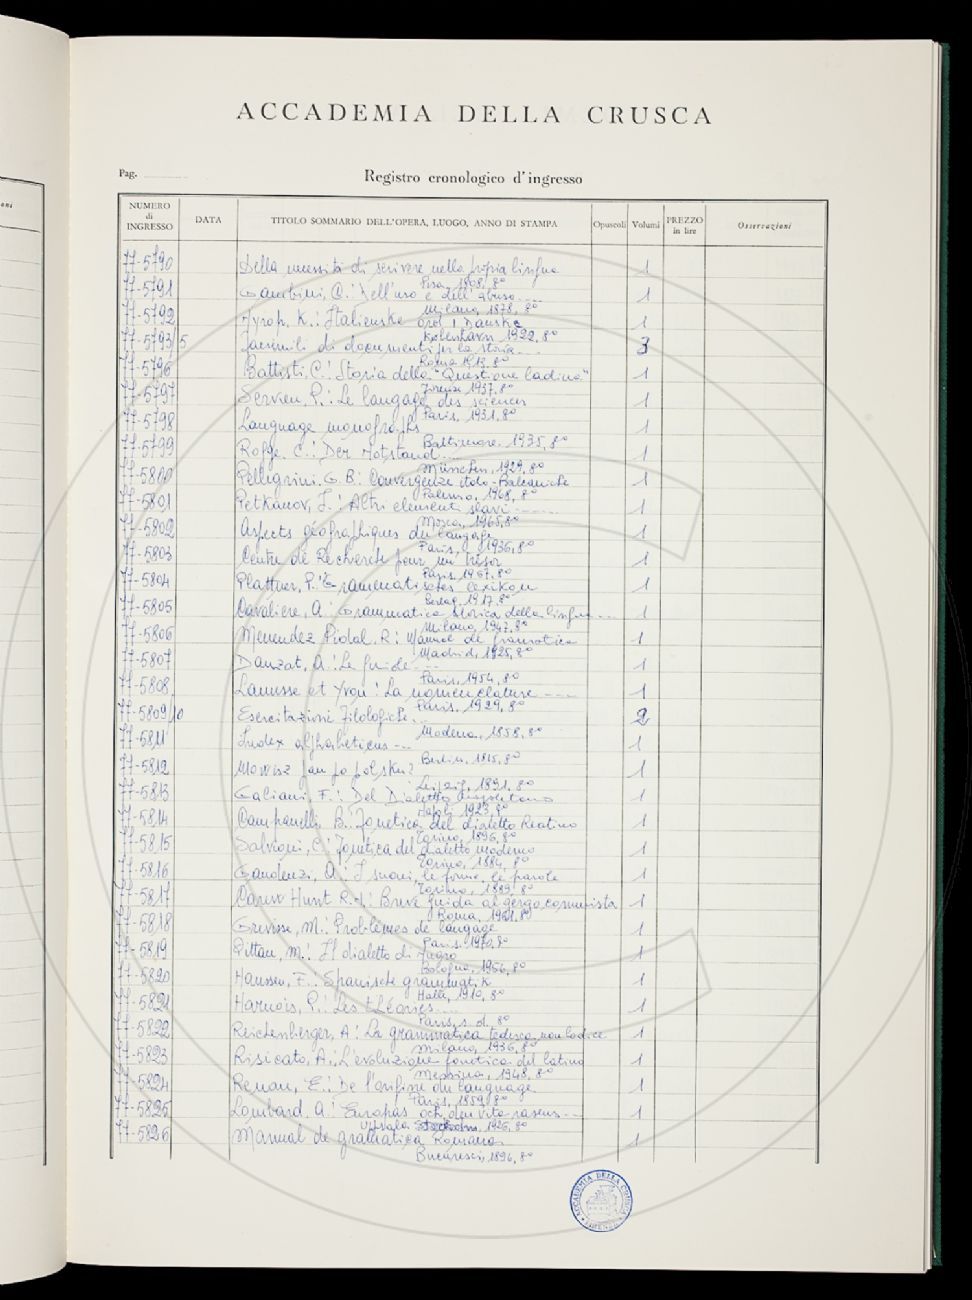 ACCADEMIA DELLA CRUSCA
Pag.
Registro cronologico d'ingresso
NUMERO di INGRESSO DATA TITOLO SOMMARIO DELL'OPERA, LUOGO, ANNO DI STAMPA Opuscoli Volumi PREZZO in lire Osservazioni
77-5790 Della necessità di scrivere nella propia lingua 1
Pisa, 1808, 8°
77-5791 Gambini, C.: Dell'uso e dell'abuso.... 1
Milano, 1878, 8°
77-5792 Nyrop, K.: Italienske ord i Danske 1
København 1922, 8°
77-5793/5 facsimili di documenti per la storia... 3
Roma 1913, 8°
77-5796 Battisti, C.: Storia della "Questione ladina" 1
Firenze 1937, 8°
77-5797 Servien, P.: Le langage des sciences 1
Paris, 1931, 8°
77-5798 Language monographs 1
Baltimore, 1935, 8°
77-5799 C.: Der Notstand... 1
München, 1929, 8°
77-5800 Pellegrini. G.B: Convergenze italo-Balcaniche 1
Palermo, 1968, 8°
77-5801 Petkanov, I.: Altri elementi slavi ...... 1
Mosca, 1965, 8°
77-5802 Aspects géographiques du langage 1
Paris, 1936, 8°
77-5803 Centre de Recherche pour un trésor 1
Paris, 1967, 8°
77-5804 Plattner, P.: Grammatisches Lexikon 1
1917, 8°
77-5805 Cavaliere, A: Grammatica storica della lingua... 1
Milano, 1947, 8°
77-5806 Menendez Pidal. R: Manual de gramatica 1
Madrid, 1925, 8°
77-5807 Dauzat, A.: Le guide.... 1
Paris, 1954, 8°
77-5808 Lanusse et Yvon: La nomenclature ---- 1
Paris. 1929, 8°
77-5809/10 Esercitazioni Filologiche... 2
Modena, 1858, 8°
77-5811 Index alphabeticus -- 1
Berlin, 1815, 8°
77-5812 Mowisz pan po polsku? 1
Leipzig, 1891, 8°
77-5813 Galiani, F.: Del Dialetto napoletano 1
Napoli 1923, 8°
77-5814 Campanelli, B. Fonetica del dialetto Reatino 1
Torino, 1896, 8°
77-5815 Salvioni, C: Fonetica del dialetto moderno 1
Torino, 1884, 8°
77-5816 Gaudenzi, A: I suoni, le forme, le parole 1
Torino, 1889, 8°
77-5817 Carew Hunt R.N: Breve guida al gergo comunista 1
Roma, 8°
77-5818 Grevisse, M.: Problèmes de langage 1
Paris, 1970, 8°
77-5819 Pittau, M.: Il dialetto di Nuoro 1
Bologna, 1956, 8°
77-5820 Hanssen, F.: Spanische grammatik 1
Halle, 1910, 8°
77-5821 Harnois, P.: Les théories.... 1
Paris, s.d. 8°
77-5822 Reichenberger, A: La grammatica tedesca, non lo dice 1
Milano, 1936, 8°
77-5823 Risicato, A.: L'evoluzione fonetica del latino 1
Messina, 1948, 8°
77-5824 Renan, E.: De l'origine du language 1
Paris, 1859, 8°
77-5825 Lombard. A.: Europas och den vita rasens--- 1
Uppsala 1926, 8°
77-5826 Manual de gramatica Romana 1
Bucuresci, 1896, 8°
ACCADEMIA DELLA CRUSCA
FIRENZE